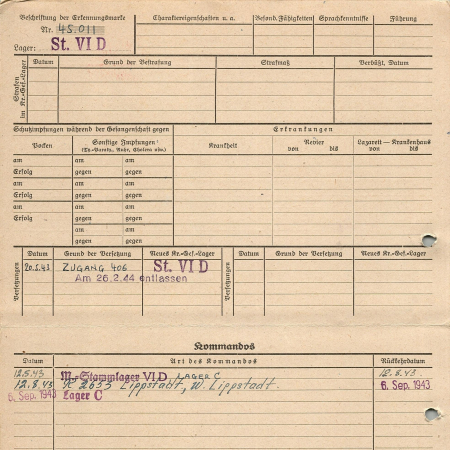 Beschriftung der Erkennungsmarke
Nr. 45.011
Lager: St. VI D
Charaktereigenschaften u. a.
Besond. Fähigkeiten
Sprachkenntnisse
Führung
Strafen im Kr.-Gef.-Lager
Datum
Grund der Bestrafung
Strafmaß
Verbüßt, Datum
Schutzimpfungen während der Gefangenschaft gegen
Erkrankungen
Pocken
Sonstige Impfungen
(Ty.-Paraty., Ruhr, Cholera usw.)
Krankheit
Revier
von bis
Lazarett — Krankenhaus
von bis
am am am
Erfolg gegen gegen
am am am
Erfolg gegen gegen
am am am
Erfolg gegen gegen
am am
gegen gegen
Versetzungen
Datum
Grund der Versetzung
Neues Kr.-Gef.-Lager
Versetzungen
Datum
Grund der Versetzung
Neues Kr.-Gef.-Lager
20.5.43 ZUGANG 406 St. VI D
Am 26.2.44 entlassen
Kommandos
Datum
Art des Kommandos
Rückkehrdatum
12.5.43 M.-Stammlager VI D LAGER C 12.8.43.
12.8.43 2655 Lippstadt, W. Lippstadt. 6. Sep. 1943
6. Sep. 1943 Lager C